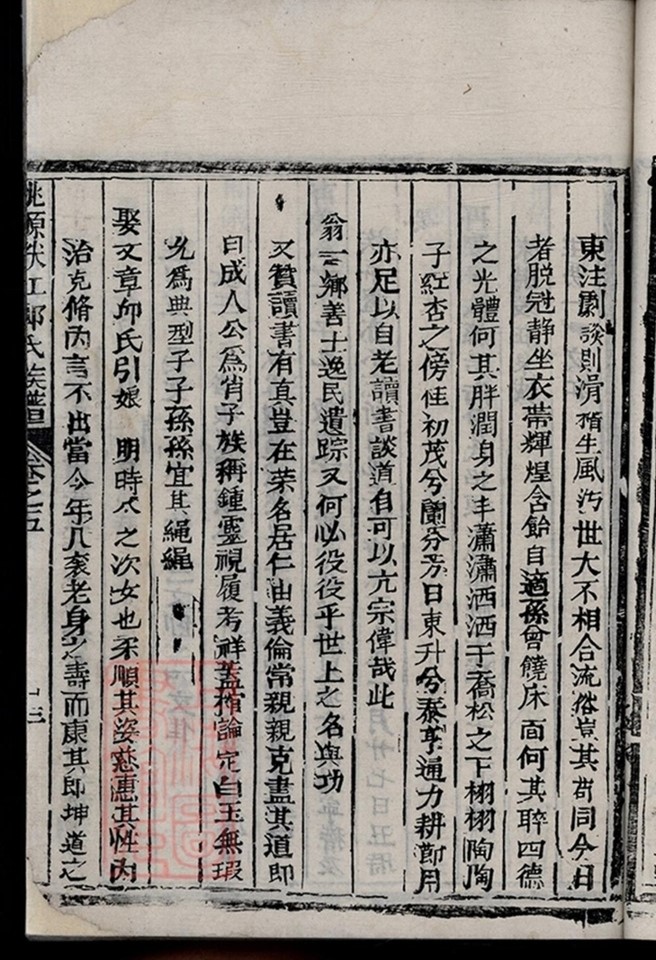 東注劇談則滑稽生風汚世大不相合流俗豈其苟同今日
者脫冠静坐衣帶輝煌含飴自適孫曾饒床面何其睟四德
之光體何其胖潤身之丰瀟瀟洒洒于喬松之下栩栩陶陶
子紅杏之傍佳初茂兮蘭芬芳日東升兮泰亨通力耕節用
亦足以自老讀書談道自可以亢宗偉哉此
翁一鄉善士逸民遺踪又何必役役乎世上之名與功
又贊讀書有真豈在荣名居仁由義倫常親親克盡其道即
曰成人公為肖子族稱鍾靈視履考祥蓋棺論定白玉無瑕
允為典型子子孫孫宜其繩繩
娶文章邱氏引娘 明時 之次女也柔順其姿慈惠其性內
治克脩內言不出當今年几衮老身之壽而康其即坤道之
桃源 江郭氏族譜 卷之五 十三